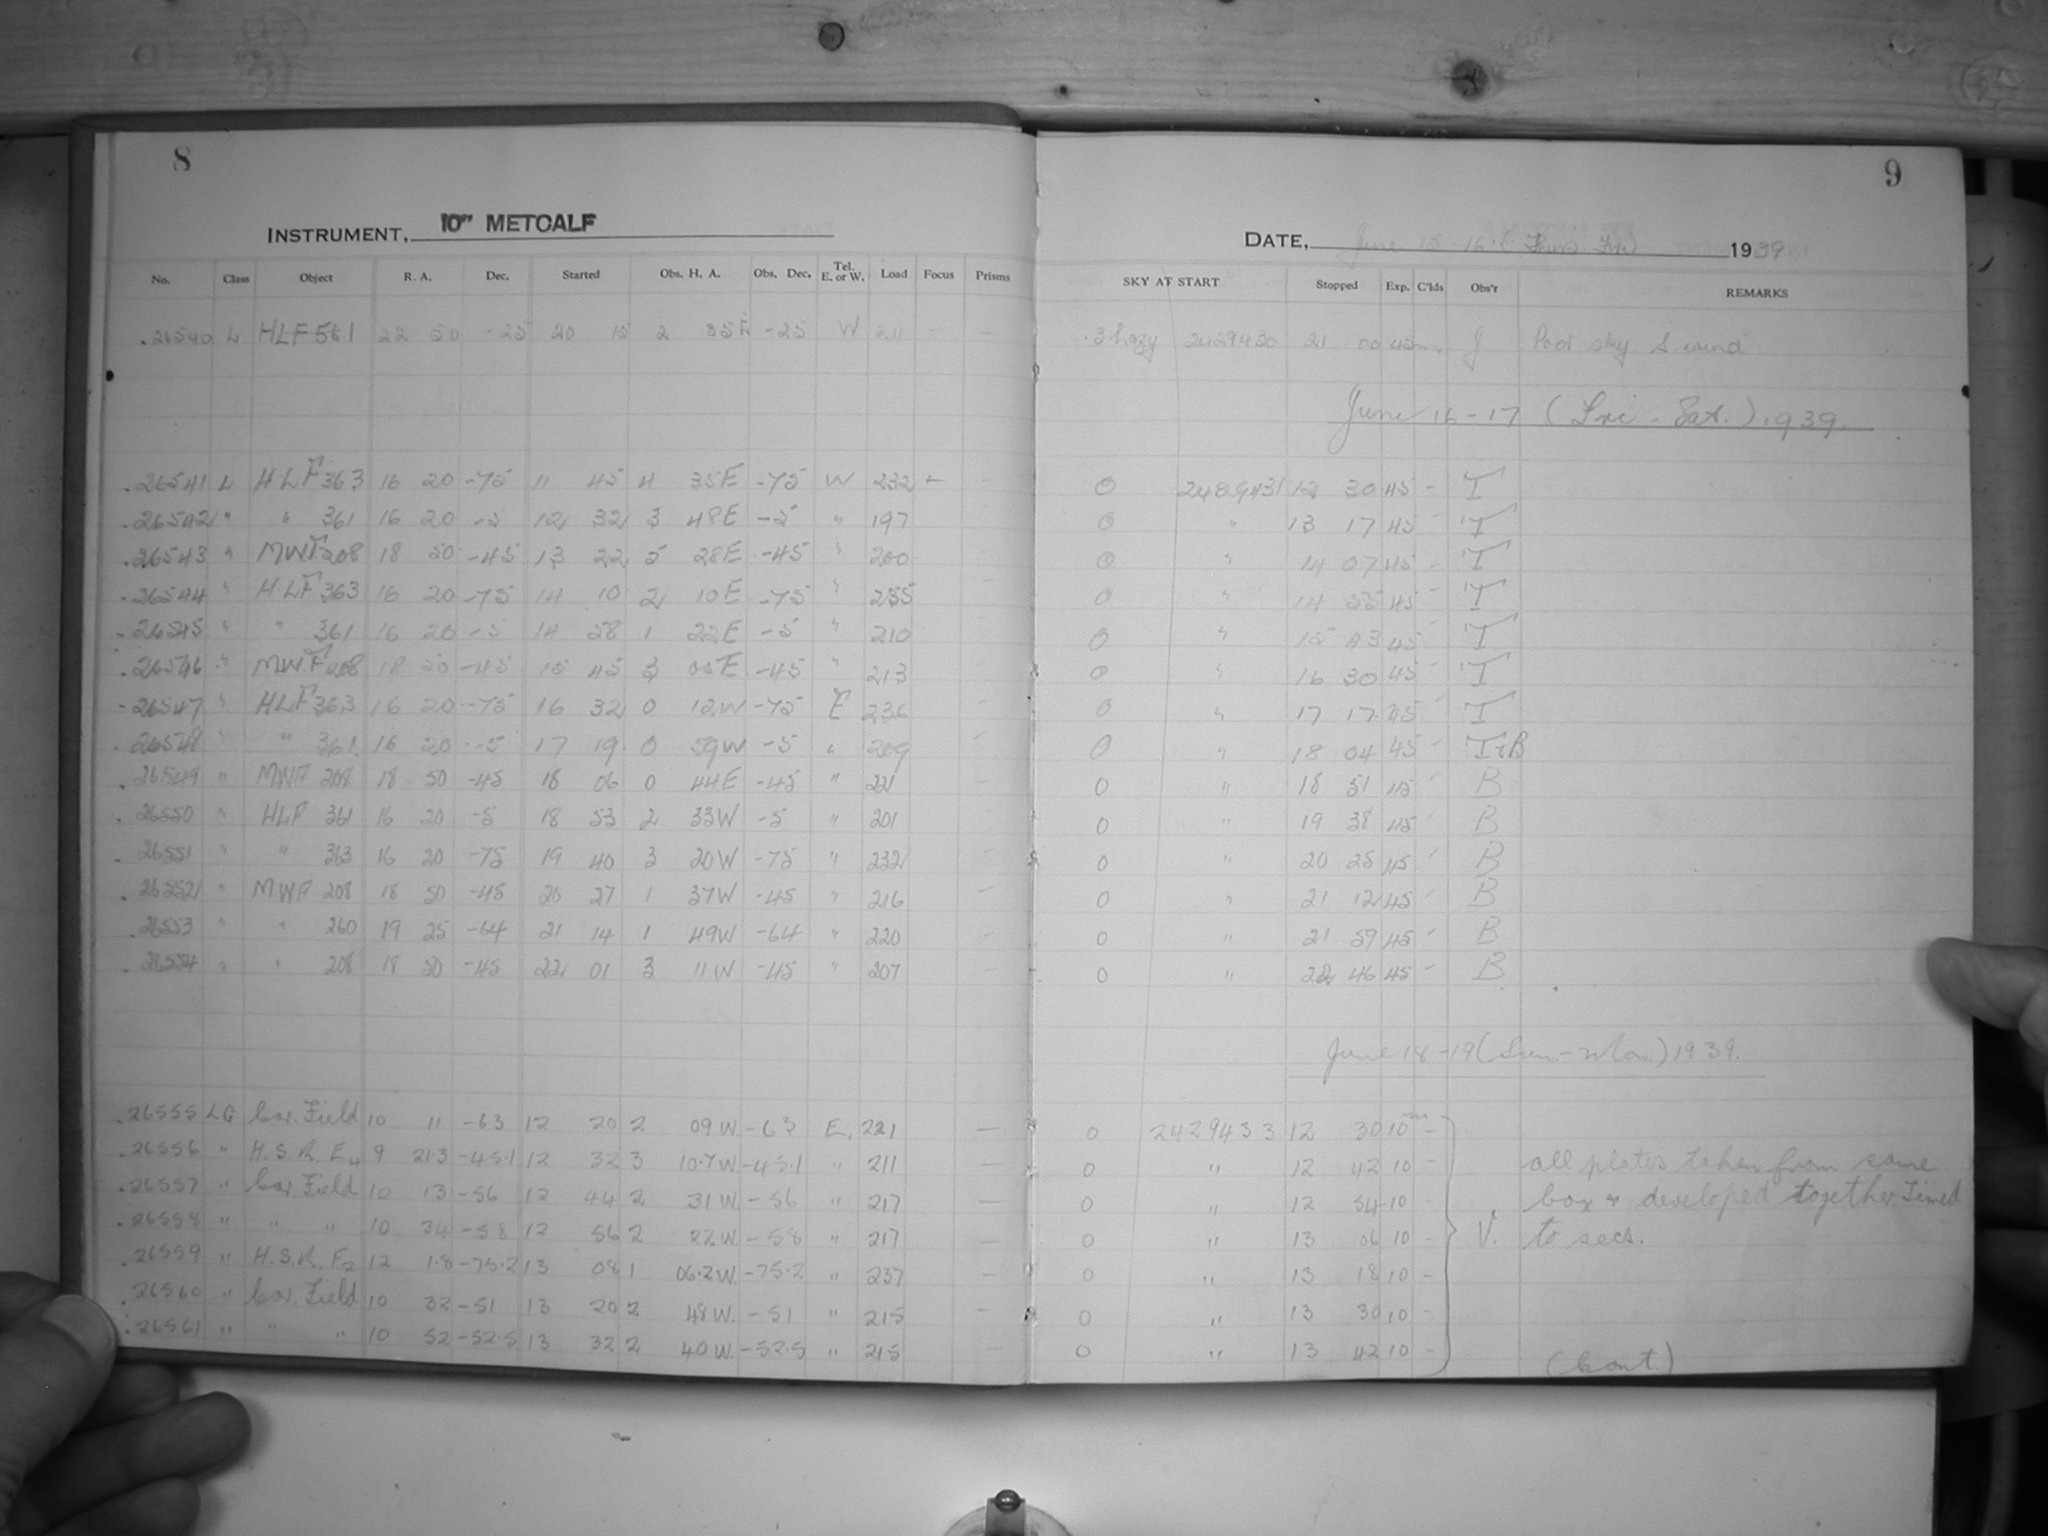 8
INSTRUMENT, 10" METCALF
No. Class Object R. A. Dec. Started Obs. H. A. Obs. Dec. Tel. E. or W. Load Focus Prisms
.26540 L HLF 22 50 -25 20 15 2 35E -25 W 211 — —
.26541 L HLF 363 16 20 -75 11 45 4 35E -75 W 232 - -
.26542 " " 361 16 20 -5 12 32 3 48E -5 " 197
.26543 " MWF 208 18 50 -45 13 22 5 28E -45 " 200
.26544 " HLF 363 16 20 -75 14 10 2 10E -75 " 235
.26545 " " 361 16 20 -5 14 58 1 22E -5 " 210
.26546 " MWF 208 18 50 -45 15 45 3 05E -45 " 213
.26547 " HLF 363 16 20 -75 16 32 0 12W -75 E 236
.26548 " " 361 16 20 -5 17 19 0 59W -5 " 209
26549 " MWF 208 18 50 -45 18 06 0 44E -45 " 221
.26550 " HLF 361 16 20 -5 18 53 2 33W -5 " 201
.26551 " " 363 16 20 -75 19 40 3 20W -75 " 232
.26552 " MWF 208 18 50 -45 20 27 1 37W -45 " 216
.26553 " " 260 19 25 -64 21 14 1 49W -64 " 220
.26554 " " 208 18 50 -45 22 01 3 11W -45 " 207
.26555 LG Car. Field 10 11 -63 12 20 2 09W -63 E. 221 —
.26556 " H.S.R. E4 9 21.3 -45.1 12 32 3 10.7W. -45.1 " 211 —
.26557 " Car. Field 10 13 -56 12 44 2 31W -56 " 217 —
.26558 " " " 10 34 -58 12 56 2 22W -58 " 217 —
.26559 " H.S.R. F2 12 1.8 -75.2 13 08 1 06.2W. -75.2 " 237 —
.26560 " Car. Field 10 32 -51 13 20 2 48W. -51 " 215 —
.26561 " " " 10 52 -52.5 13 32 2 40W. -52.5 " 215 —
9
DATE, June 15-16 Thurs. Fri 1939
SKY AT START Stopped Exp. C'lds Obs'r REMARKS
.3 hazy 2429430 21 00 45 J Poor sky S wind
June 16-17 (Fri - Sat.) 1939.
0 2429431 12 30 45 - T
0 " 13 17 45 - T
0 " 14 07 45 - T
0 " 14 55 45 - T
0 " 15 43 45 - T
0 " 16 30 45 - T
0 " 17 17 45 - T
0 " 18 04 45 - T&B
0 " 18 51 45 - B
0 " 19 38 45 - B
0 " 20 25 45 - B
0 " 21 12 45 - B
0 " 21 59 45 - B
0 " 22 46 45 - B
June 18-19 (Sun.-Mon.) 1939.
0 2429433 12 30 10m -
0 " 12 42 10 - all plates taken from same
0 " 12 54 10 - box & developed together. Timed
0 " 13 06 10 - V. to secs.
0 " 13 18 10 -
0 " 13 30 10 -
0 " 13 42 10 -
(Cont.)